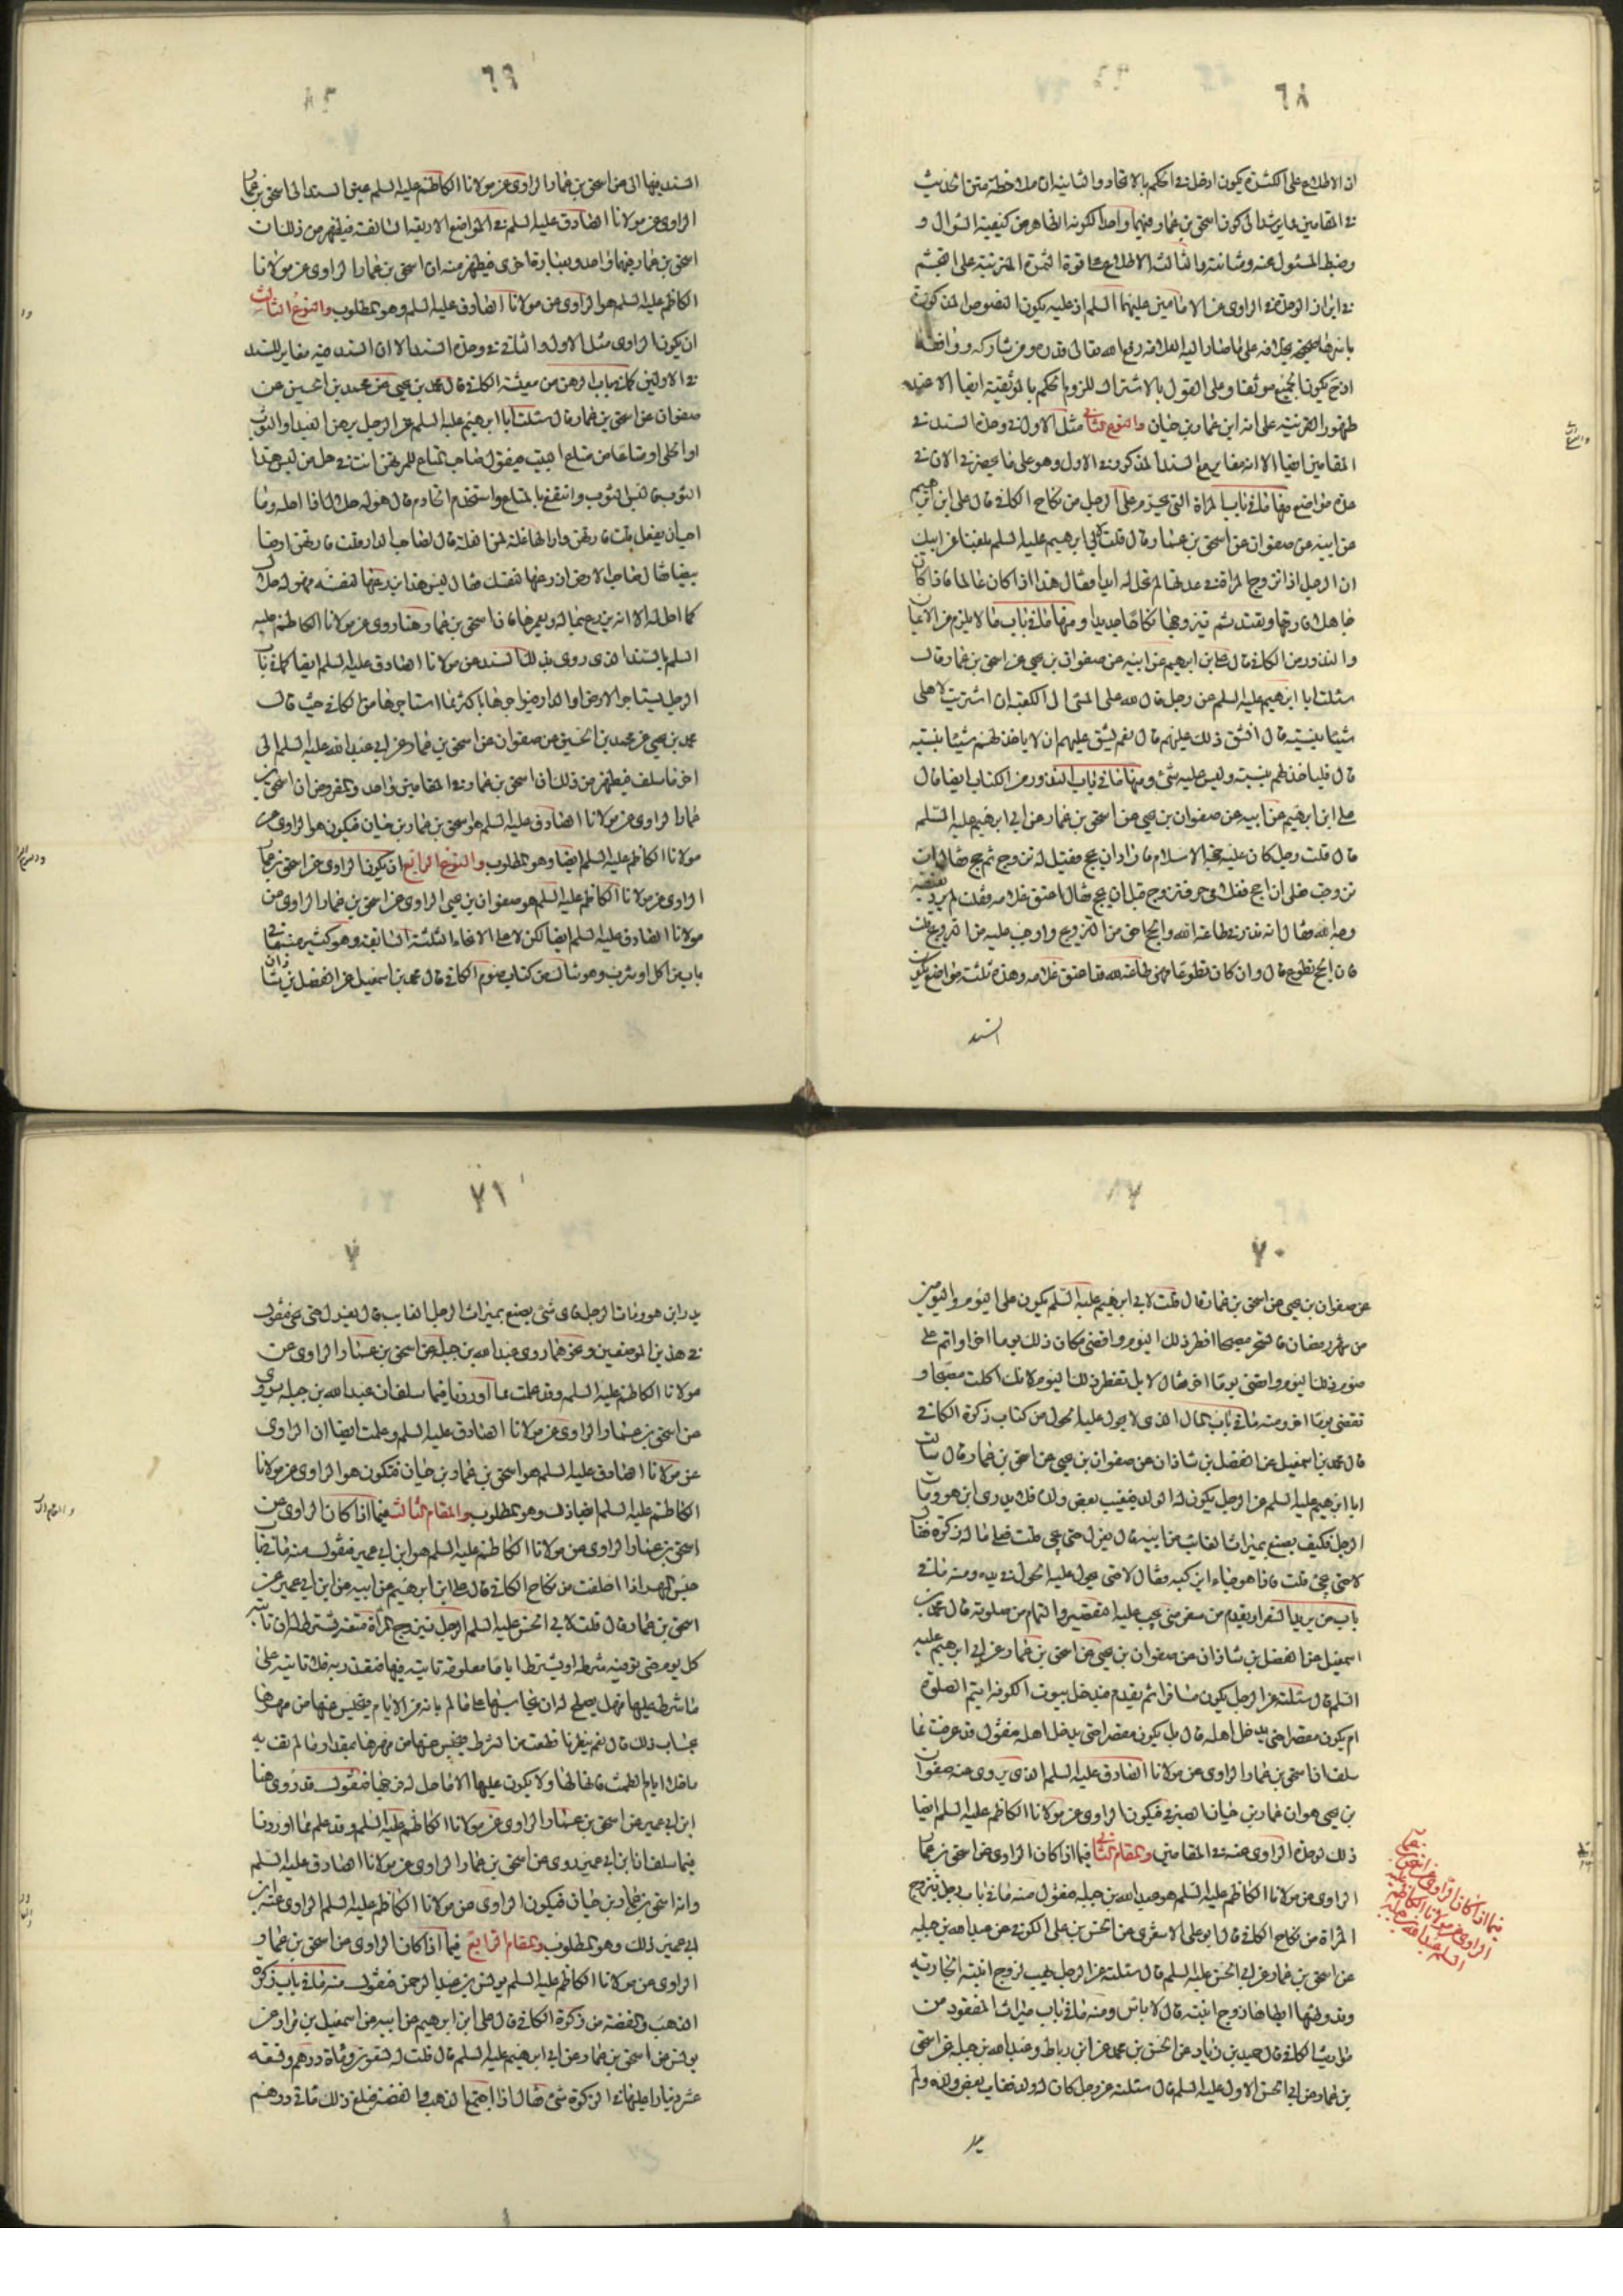 ٦٨
ان الاطلاع على اكثره يكون ادخل في الحكم بالاتحاد والثانية ان ملاحظة متن الحديث
في المقامين مما يرشد الى كون اسحق بن عمار فيهما واحدا لكونه الظاهر من كيفية السؤال و
وضبط المسئول عنه ومتانته والثالثة الاطلاع على قوة الثمرة المترتبة على القسم
في ابراز الوحدة في الراوى عن الامامين عليهما السلم اذ عليه يكون النصوص المذكورة
باسرها صحيحة بخلافه على ما صار اليه العلامه رفع الله تعالى قدره ومن شاركه ووافقه
اذ ح يكون الجميع موثقا وعلى القول بالاشتراك للزوم الحكم بالموثقية ايضا الا عند
ظهور القرينة على انه ابن عمار بن حيان والنوع الثانى مثل الاول في وحدة السند في
المقامين ايضا الا انه مغاير مع السند المذكور في الاول وهو على ما يحضرني الان في
عدة مواضع منها ما في باب المراة التى تحرم على الرجل من نكاح الكافي قال على ابن ابرهيم
عن ابيه عن صفوان عن اسحق بن عمار قال قلت لابى ابرهيم عليه السلم بلغنا عن ابيك
ان الرجل اذا تزوج المراة في عدتها لم تحل له ابدا فقال هذا اذا كان عالما فاذا كان
جاهلا فارقها وتعتد ثم تزوجها نكاحا جديدا ومنها ما في باب ما لا يلزم من الايمان
والنذور من الكافي قال على بن ابرهيم عن ابيه عن صفوان بن يحيى عن اسحق بن عمار قال
سئلت ابا ابرهيم عليه السلم عن رجل قال لله على المشى الى الكعبة ان اشتريت لاهلى
شيئا بنسيئة قال ايشق ذلك عليهم قال نعم يشق عليهم ان لا ياخذ لهم شيئا بنسية
قال فلياخذ لهم بنسية وليس عليه شئ ومنها ما في باب النذور من الكتاب ايضا قال
على ابن ابرهيم عن ابيه عن صفوان بن يحيى عن اسحق بن عمار عن ابى ابرهيم عليه السلم
قال قلت رجل كان عليه حجة الاسلام فاراد ان يحج فقيل له تزوج ثم حج فقال ان
تزوجت قبل ان احج فغلامى حر فتزوج قبل ان يحج فقال اعتق غلامه فقلت لم يرد بعتقه
وجه الله فقال انه نذر في طاعة الله والحج احق من التزويج واوجب عليه من التزويج قلت
فان الحج تطوع قال وان كان تطوعا فهى طاعة لله قد اعتق غلامه وهذه ثلثة مواضع يكون
السند
٦٩
السند فيها الى عن اسحق بن عمار الراوى عن مولانا الكاظم عليه السلم عين السند الى اسحق بن عمار
الراوى عن مولانا الصادق عليه السلم في المواضع الاربعة السالفة فيظهر من ذلك ان
اسحق بن عمار فيهما واحد وبعبارة اخرى فيظهر منه ان اسحق بن عمار الراوى عن مولانا
الكاظم عليه السلم هو الراوى عن مولانا الصادق عليه السلم وهو المطلوب والنوع الثالث
ان يكون الراوى مثل الاول والثانى في وحدة السند الا ان السند فيه مغاير للسند
في الاولين كما في باب الرهن من معيشة الكافي قال محمد بن يحيى عن محمد بن الحسين عن
صفوان عن اسحق بن عمار قال سئلت ابا ابرهيم عليه السلم عن الرجل يرهن العبد او الثوب
او الحلى او متاعا من متاع البيت فيقول صاحب المتاع للمرتهن انت في حل من لبس هذا
الثوب فالبس الثوب وانتفع بالمتاع واستخدم الخادم قال هو له حلال اذا احله وما
احب ان يفعل قلت فارتهن دارا لها غلة لمن الغلة قال لصاحب الدار قلت فارتهن ارضا
بيضا فقال صاحب الارض ازرعها لنفسك فقال ليس هذا يزرعها لنفسه فهو له حلال
كما احله له الا انه يزرع بماله ويعمرها فاسحق بن عمار هنا روى عن مولانا الكاظم عليه
السلم بالسند الذى روى بذلك السند عن مولانا الصادق عليه السلم ايضا كما في باب
الرجل يستاجر الارض او الدار فيواجرها باكثر مما استاجرها من الكافي حيث قال
محمد بن يحيى عن محمد بن الحسين عن صفوان عن اسحق بن عمار عن ابى عبد الله عليه السلم الى
اخر ما سلف فيظهر من ذلك ان اسحق بن عمار في المقامين واحد والمفروض ان اسحق بن
عمار الراوى عن مولانا الصادق عليه السلم هو اسحق بن عمار بن حيان فيكون هو الراوى عن
مولانا الكاظم عليه السلم ايضا وهو المطلوب والنوع الرابع ان يكون الراوى عن اسحق بن عمار
الراوى عن مولانا الكاظم عليه السلم هو صفوان بن يحيى الراوى عن اسحق بن عمار الراوى عن
مولانا الصادق عليه السلم ايضا لكن لا على الانحاء الثلثة السابقة وهو كثير منه ما في
باب من اكل او شرب وهو شاك من كتاب صوم الكافي قال محمد بن اسمعيل عن الفضل بن شاذان
٧٠
عن صفوان بن يحيى عن اسحق بن عمار قال قلت لابى ابرهيم عليه السلم يكون على اليوم واليومين
من شهر رمضان فاتسحر مصبحا افطر ذلك اليوم واقضى مكان ذلك يوما اخر او اتم على
صوم ذلك اليوم واقضى يوما اخر فقال لا بل تفطر ذلك اليوم لانك اكلت مصبحا و
تقضى يوما اخر ومنه ما في باب المال الذى لا يحول عليه الحول من كتاب زكوة الكافي
قال محمد بن اسمعيل عن الفضل بن شاذان عن صفوان بن يحيى عن اسحق بن عمار قال سالت
ابا ابرهيم عليه السلم عن الرجل يكون له الولد فيغيب بعض ولده فلا يدرى اين هو ومات
الرجل فكيف يصنع بميراث الغائب من ابيه قال يعزل حتى يجئ قلت فعلى ماله زكوة فقال
لا حتى يجئ قلت فاذا هو جاء ايزكيه فقال لا حتى يحول عليه الحول في يده ومنه ما في
باب من يريد السفر او يقدم من سفر متى يجب عليه التقصير والتمام من صلوته قال محمد بن
اسمعيل عن الفضل بن شاذان عن صفوان بن يحيى عن اسحق بن عمار عن ابى ابرهيم عليه
السلم قال سئلته عن الرجل يكون مسافرا ثم يقدم فيدخل بيوت الكوفة ايتم الصلوة
ام يكون مقصرا حتى يدخل اهله قال بل يكون مقصرا حتى يدخل اهله فنقول قد عرفت مما
سلف ان اسحق بن عمار الراوى عن مولانا الصادق عليه السلم الذى يروى عنه صفوان
بن يحيى هو ابن عمار بن حيان الصيرفي فيكون الراوى عن مولانا الكاظم عليه السلم ايضا
ذلك لوحدة الراوى عنه في المقامين والمقام الثانى فيما اذا كان الراوى عن اسحق بن عمار
الراوى عن مولانا الكاظم عليه السلم هو عبد الله بن جبلة فنقول منه ما في باب رجل يتزوج
المراة من نكاح الكافي قال ابو على الاشعرى عن الحسن بن على الكوفي عن عبد الله بن جبلة
عن اسحق بن عمار عن ابى الحسن عليه السلم قال سئلته عن الرجل يهب لزوج ابنته الجارية
وقد وطئها ايطاها زوج ابنته قال لا باس ومنه ما في باب ميراث المفقود من
مواريث الكافي قال حميد بن زياد عن الحسن بن محمد عن ابن رباط وعبد الله بن جبلة عن اسحق
بن عمار عن ابى الحسن الاول عليه السلم قال سئلته عن رجل كان له ولد فغاب بعض ولده ولم
فيما اذا كان الراوى عن اسحق بن عمار
الراوى عن مولانا الكاظم عليه
السلم عبد الله بن جبلة
٧١
يدر اين هو ومات الرجل فاى شئ يصنع بميراث الرجل الغايب قال يعزل حتى يجئ فنقول
في هذين الموضعين ونحوهما روى عبد الله بن جبلة عن اسحق بن عمار الراوى عن
مولانا الكاظم عليه السلم وقد علمت مما اوردنا فيما سلف ان عبد الله بن جبلة يروى
عن اسحق بن عمار الراوى عن مولانا الصادق عليه السلم وعلمت ايضا ان الراوى
عن مولانا الصادق عليه السلم هو اسحق بن عمار بن حيان فيكون هو الراوى عن مولانا
الكاظم عليه السلم ايضا ذلك وهو المطلوب والمقام الثالث فيما اذا كان الراوى عن
اسحق بن عمار الراوى عن مولانا الكاظم عليه السلم هو ابن ابى عمير فنقول منه ما في باب
حبس المهر اذا اخلفت من نكاح الكافي قال على ابن ابرهيم عن ابيه عن ابن ابى عمير عن
اسحق بن عمار قال قلت لابى الحسن عليه السلم الرجل يتزوج المراة متعة تشترط له ان تاتيه
كل يوم حتى توفيه شرطه او يشترط اياما معلومة تاتيه فيها فتغدر به فلا تاتيه على
ما شرطه عليها فهل يصلح له ان يحاسبها على ما لم تاته من الايام فيحبس عنها من مهرها
بحساب ذلك قال نعم ينظر ما قطعت من الشرط فيحبس عنها من مهرها بمقدار ما لم تف به
ما خلا ايام الطمث فانها لها ولا يكون عليها الا ما حل له فرجها فنقول قد روى هنا
ابن ابى عمير عن اسحق بن عمار الراوى عن مولانا الكاظم عليه السلم وقد علم مما اوردنا
فيما سلف ان ابن ابى عمير روى عن اسحق بن عمار الراوى عن مولانا الصادق عليه السلم
وانه اسحق بن عمار بن حيان فيكون الراوى عن مولانا الكاظم عليه السلم الراوى عنه ابن
ابى عمير ذلك وهو المطلوب والمقام الرابع فيما اذا كان الراوى عن اسحق بن عمار
الراوى عن مولانا الكاظم عليه السلم يونس بن عبد الرحمن فنقول منه ما في باب زكوة
الذهب والفضة من زكوة الكافي قال على ابن ابرهيم عن ابيه عن اسمعيل بن مرار عن
يونس عن اسحق بن عمار عن ابى ابرهيم عليه السلم قال قلت له تسعون ومائة درهم وتسعة
عشر دينارا اعليها في الزكوة شئ فقال اذا اجتمع الذهب والفضة فبلغ ذلك مائتى درهم